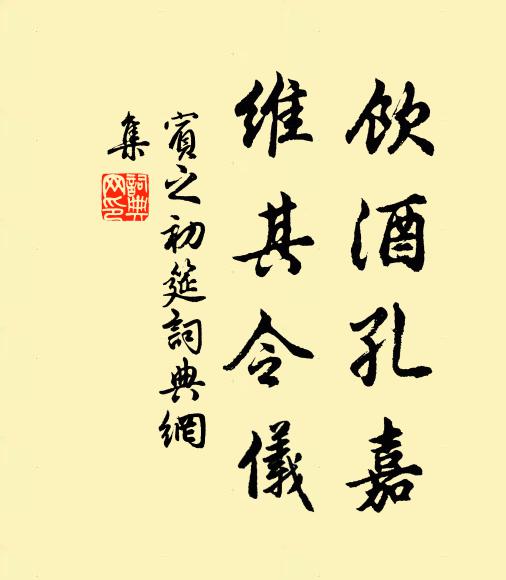 飲酒孔嘉
維其令儀
賓之初筵詞典網
集
詞典
网印